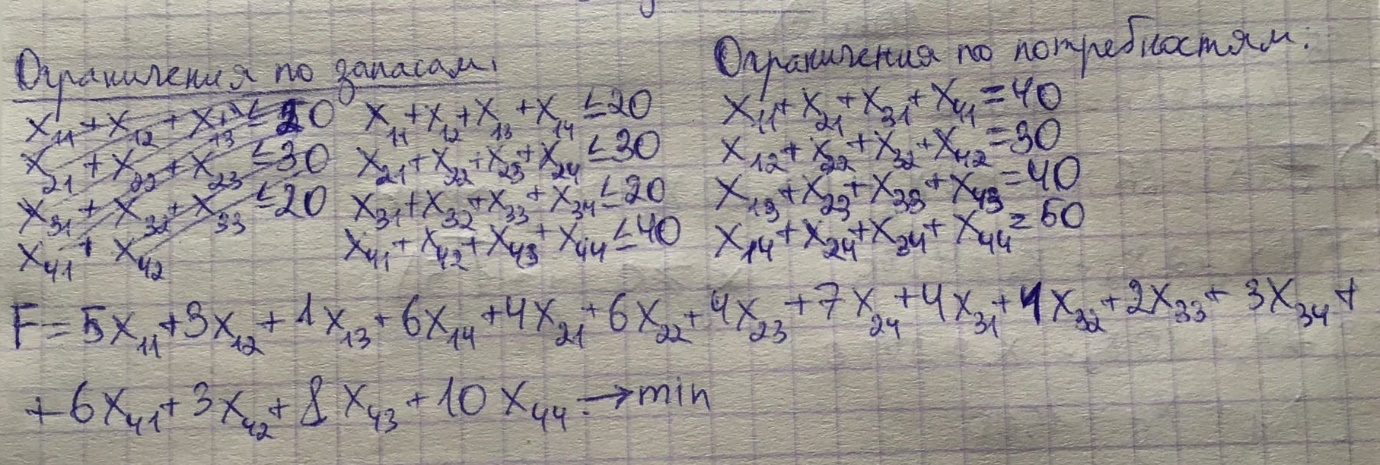 Ограничения по запасам:
x₁₁ + x₁₂ + x₁₃ ≤ 20
x₂₁ + x₂₂ + x₂₃ ≤ 30
x₃₁ + x₃₂ + x₃₃ ≤ 20
x₄₁ + x₄₂
x₁₁ + x₁₂ + x₁₃ + x₁₄ ≤ 20
x₂₁ + x₂₂ + x₂₃ + x₂₄ ≤ 30
x₃₁ + x₃₂ + x₃₃ + x₃₄ ≤ 20
x₄₁ + x₄₂ + x₄₃ + x₄₄ ≤ 40
Ограничения по потребностям:
x₁₁ + x₂₁ + x₃₁ + x₄₁ = 40
x₁₂ + x₂₂ + x₃₂ + x₄₂ = 30
x₁₃ + x₂₃ + x₃₃ + x₄₃ = 40
x₁₄ + x₂₄ + x₃₄ + x₄₄ = 50
F = 5x₁₁ + 3x₁₂ + 1x₁₃ + 6x₁₄ + 4x₂₁ + 6x₂₂ + 4x₂₃ + 7x₂₄ + 4x₃₁ + 1x₃₂ + 2x₃₃ + 3x₃₄ +
+ 6x₄₁ + 3x₄₂ + 8x₄₃ + 10x₄₄ → min